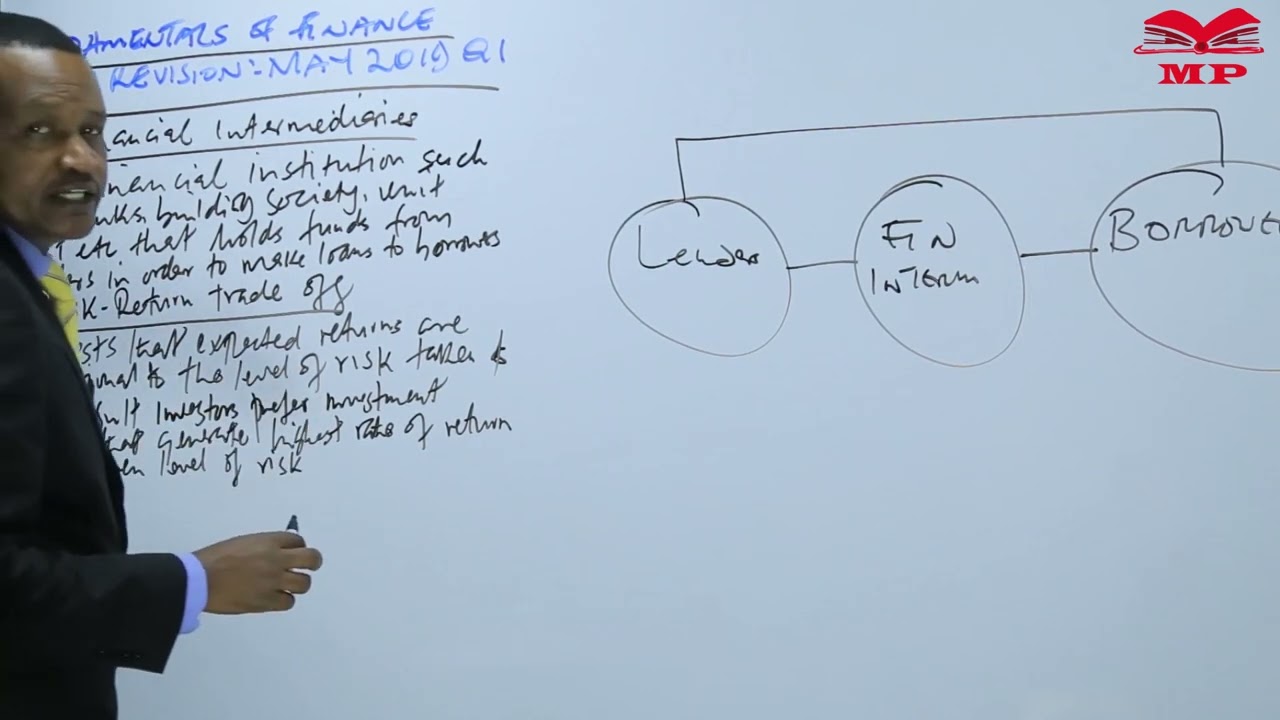 DAMENTALS OF FINANCE
REVISION:-MAY 2019 Q1
nancial Intermediaries
inancial institution such
nks, building society, unit
T etc. that holds funds from
ers in order to make loans to borrowers
k-Return trade off
sts that expected returns are
onal to the level of risk taken &
sult Investors prefer investment
that generate highest rates of return
en level of risk
Lender
FIN
INTERM
BORROWE
MP